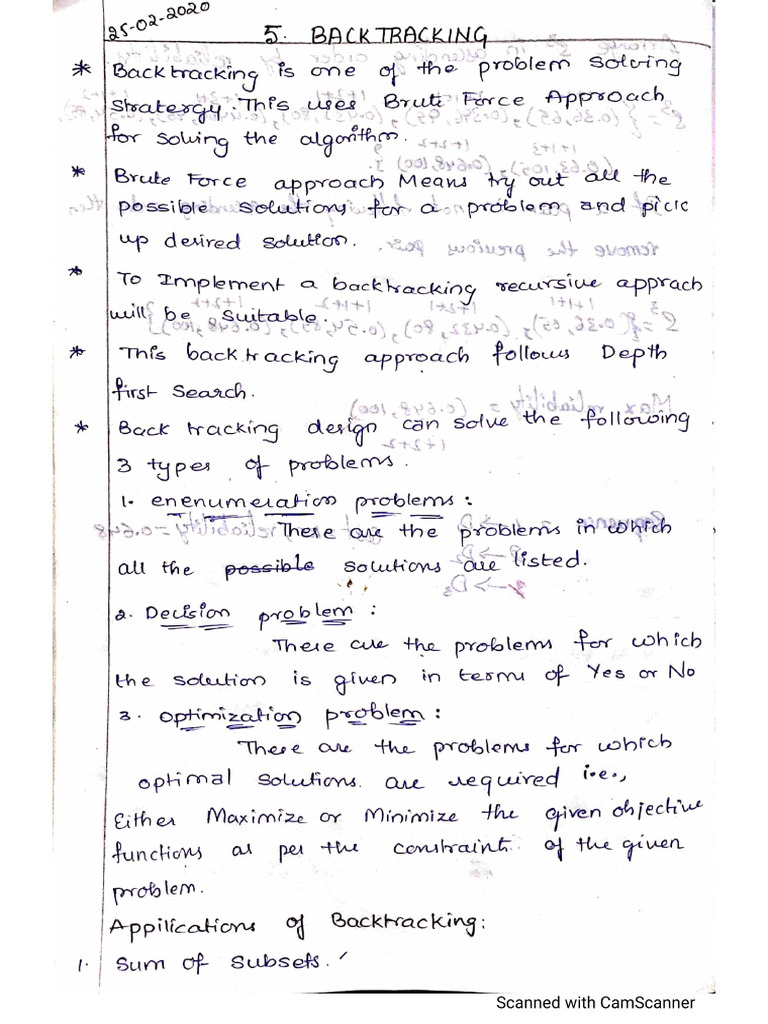 25-02-2020
5. BACKTRACKING
* Backtracking is one of the problem solving
stratergy. This uses Brute Force Approach
for solving the algorithm.
* Brute Force approach Means try out all the
possible solutions for a problem and pick
up desired solution.
* To Implement a backtracking recursive apprach
will be suitable.
* This backtracking approach follows Depth
first search.
* Back tracking design can solve the following
3 types of problems.
1. enenumeration problems:
These are the problems in which
all the possible solutions are listed.
2. Decision problem:
There are the problems for which
the solution is given in terms of Yes or No
3. optimization problem:
These are the problems for which
optimal solutions are required i.e.,
Either Maximize or Minimize the given objective
functions as per the constraint of the given
problem.
Appilications of Backtracking:
1. Sum of subsets.
Scanned with CamScanner